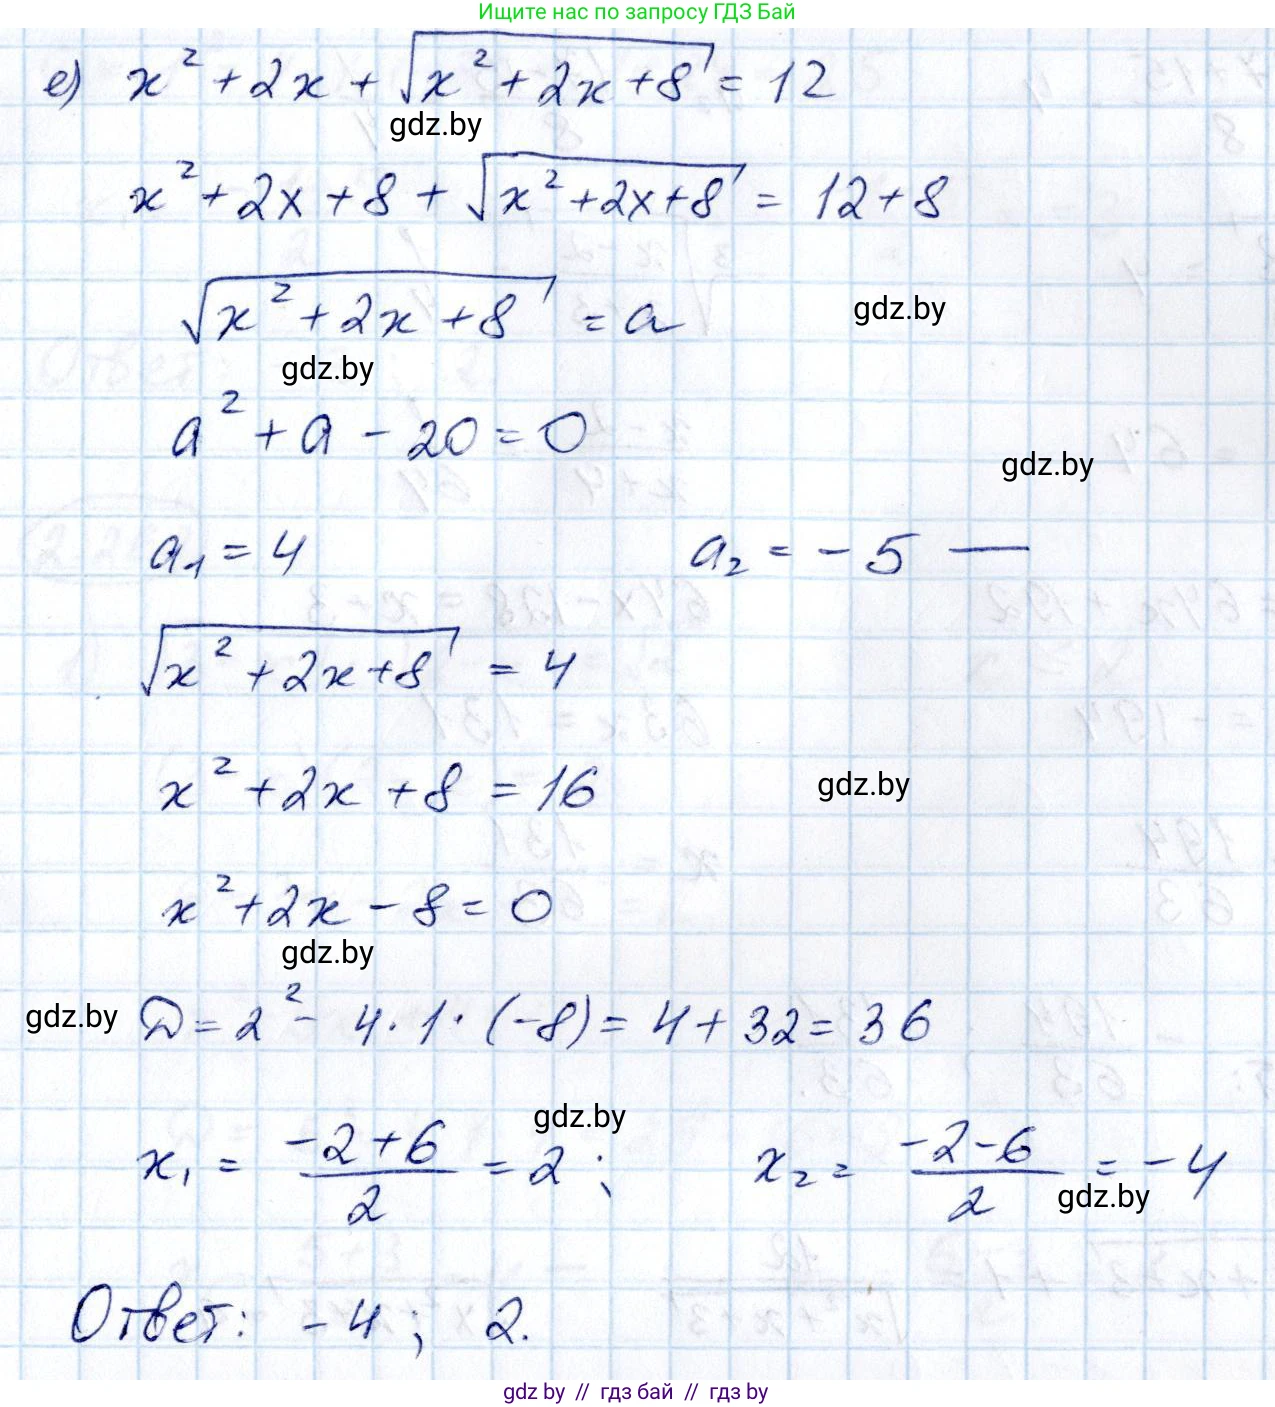 Ищите нас по запросу ГДЗ Бай
е) x² + 2x + √(x² + 2x + 8) = 12
gdz.by
x² + 2x + 8 + √(x² + 2x + 8) = 12 + 8
√(x² + 2x + 8) = a
gdz.by
gdz.by
a² + a - 20 = 0
gdz.by
a₁ = 4 a₂ = - 5 —
√(x² + 2x + 8) = 4
x² + 2x + 8 = 16
gdz.by
x² + 2x - 8 = 0
gdz.by
gdz.by
D = 2² - 4 · 1 · (-8) = 4 + 32 = 36
gdz.by
x₁ = (-2 + 6)/2 = 2 ; x₂ = (-2 - 6)/2 = -4
gdz.by
Ответ: -4 ; 2.
gdz by // гдз бай // гдз by